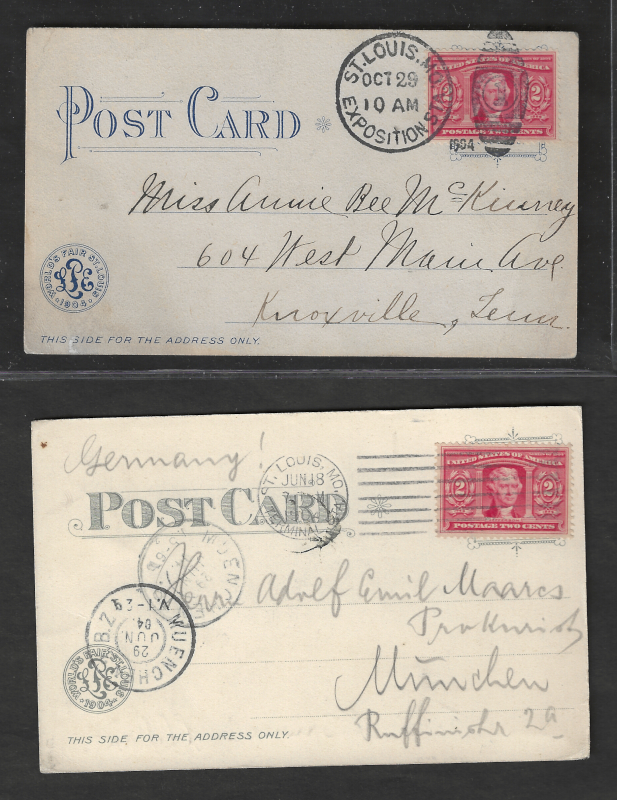 ST. LOUIS, MO.
OCT 29
10 AM
EXPOSITION STA.
1904
UNITED STATES OF AMERICA
2 2
POSTAGE TWO CENTS
POST CARD
Miss Annie Bee McKinney
604 West Main Ave
Knoxville, Tenn.
WORLD'S FAIR ST. LOUIS
LPE
1904
THIS SIDE FOR THE ADDRESS ONLY.
Germany!
ST. LOUIS, MO.
JUN 18
TERMINAL
UNITED STATES OF AMERICA
2 2
POSTAGE TWO CENTS
POST CARD
MUENCH
Herrn Adolf Emil Maares
Prokurist
München
Ruffinistr 2a
MUENCH
29
JUN
04
B.Z.
WORLD'S FAIR ST. LOUIS
LPE
1904
THIS SIDE FOR THE ADDRESS ONLY.